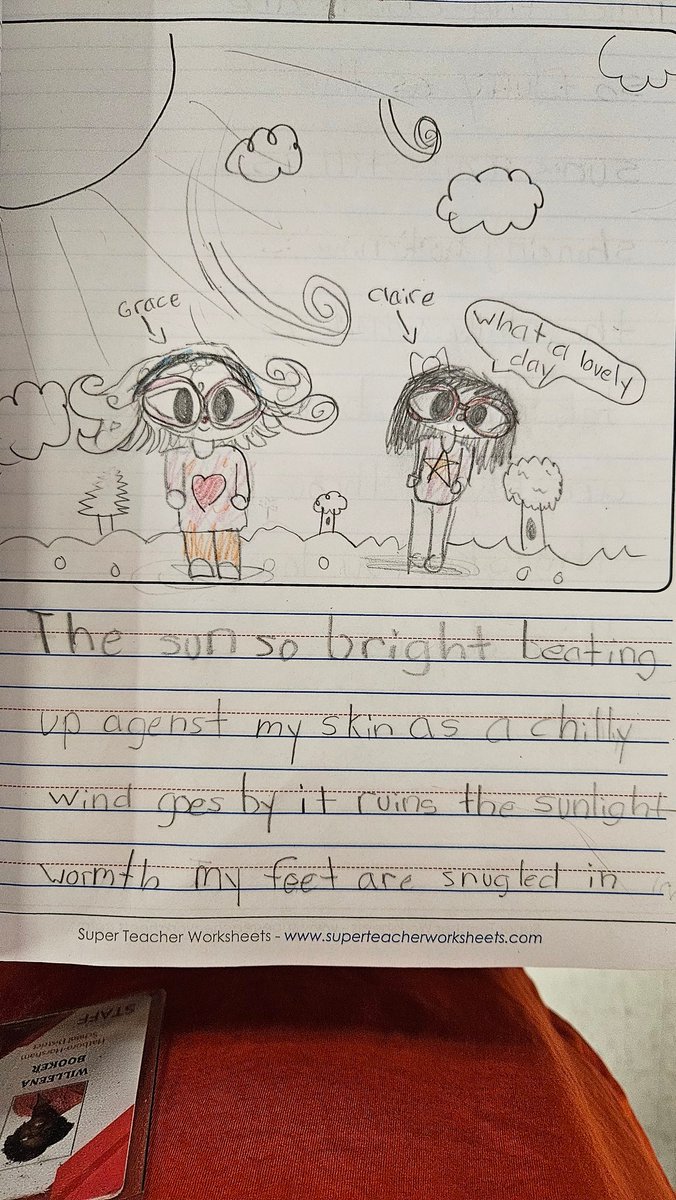 Grace
Claire
What a lovely
day
The sun so bright beating
up agenst my skin as a chilly
wind goes by it ruins the sunlight
wormth my feet are snugled in
Super Teacher Worksheets - www.superteacherworksheets.com
STAFF
Hatboro-Horsham
School District
WILLEENA
BOOKER